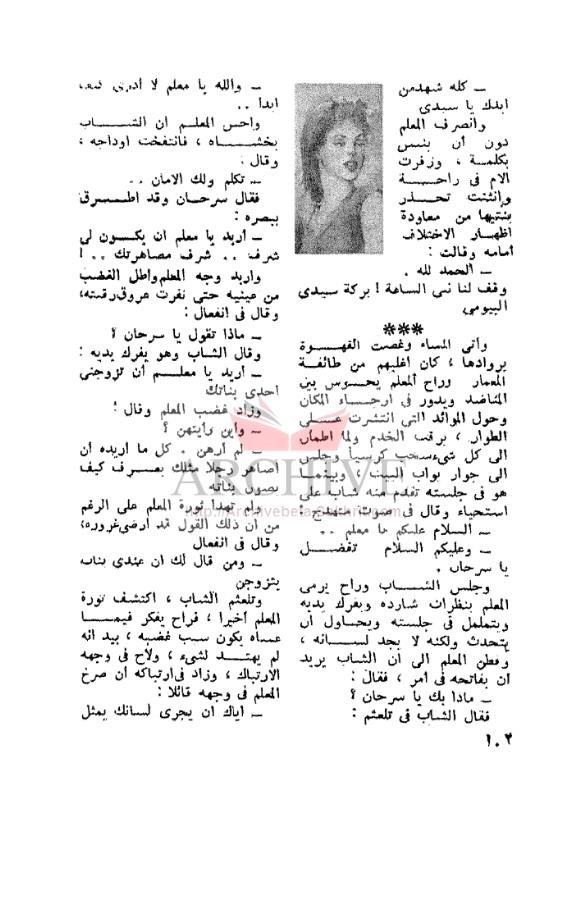 — كله شهد من
ايدك يا سيدى
وانصرف المعلم
دون أن ينبس
بكلمة ، وزفرت
الام فى راحة
وانثنت تحذر
بنتيها من معاودة
اظهار الاختلاف
أمامه وقالت :
— الحمد لله .
وقف لنا نبى الساعة ! بركة سيدى
البيومى
***
وأتى المساء وغصت القهوة
بروادها ، كان أغلبهم من طائفة
المعمار وراح المعلم يجوس بين
المناضد ويدور فى أرجاء المكان
وحول الموائد التى انتشرت على
الطوار ، يرقب الخدم ولما اطمأن
الى كل شىء سحب كرسيا وجلس
الى جوار بواب البيت ، وبينما
هو فى جلسته تقدم منه شاب على
استحياء وقال فى صوت متهدج :
— السلام عليكم يا معلم ..
— وعليكم السلام تفضل
يا سرحان .
وجلس الشاب وراح يرمى
المعلم بنظرات شارده ويفرك يديه
ويتململ فى جلسته ويحاول أن
يتحدث ولكنه لا يجد لسانه ،
وفطن المعلم الى أن الشاب يريد
أن يفاتحه فى أمر ، فقال :
— ماذا بك يا سرحان ؟
فقال الشاب فى تلعثم :
— والله يا معلم لا أدرى كيف
ابدأ ..
واحس المعلم أن الشاب
يخشاه ، فانتفخت اوداجه ،
وقال :
— تكلم ولك الامان ..
فقال سرحان وقد اطرق
ببصره :
— أريد يا معلم ان يكون لى
شرف .. شرف مصاهرتك .. !
واربد وجه المعلم واطل الغضب
من عينيه حتى نفرت عروق رقبته،
وقال فى انفعال :
— ماذا تقول يا سرحان ؟
وقال الشاب وهو يفرك يديه :
— أريد يا معلم أن تزوجنى
احدى بناتك
وزاد غضب المعلم وقال :
— واين رأيتهن ؟
— لم أرهن . كل ما أريده أن
أصاهر رجلا مثلك يعرف كيف
يصون بناته
ولم تهدأ ثورة المعلم على الرغم
من أن ذلك القول قد ارضى غروره،
وقال فى انفعال
— ومن قال لك ان عندى بنات
يتزوجن
وتلعثم الشاب ، اكتشف ثورة
المعلم أخيرا ، فراح يفكر فيما
عساه يكون سبب غضبه ، بيد انه
لم يهتد لشىء ، ولاح فى وجهه
الارتباك ، وزاد فى ارتباكه أن صرخ
المعلم فى وجهه قائلا :
— أياك ان يجرى لسانك بمثل
١٠٢
ARCHIVE
http://Archivebeta.Sakhrit.com